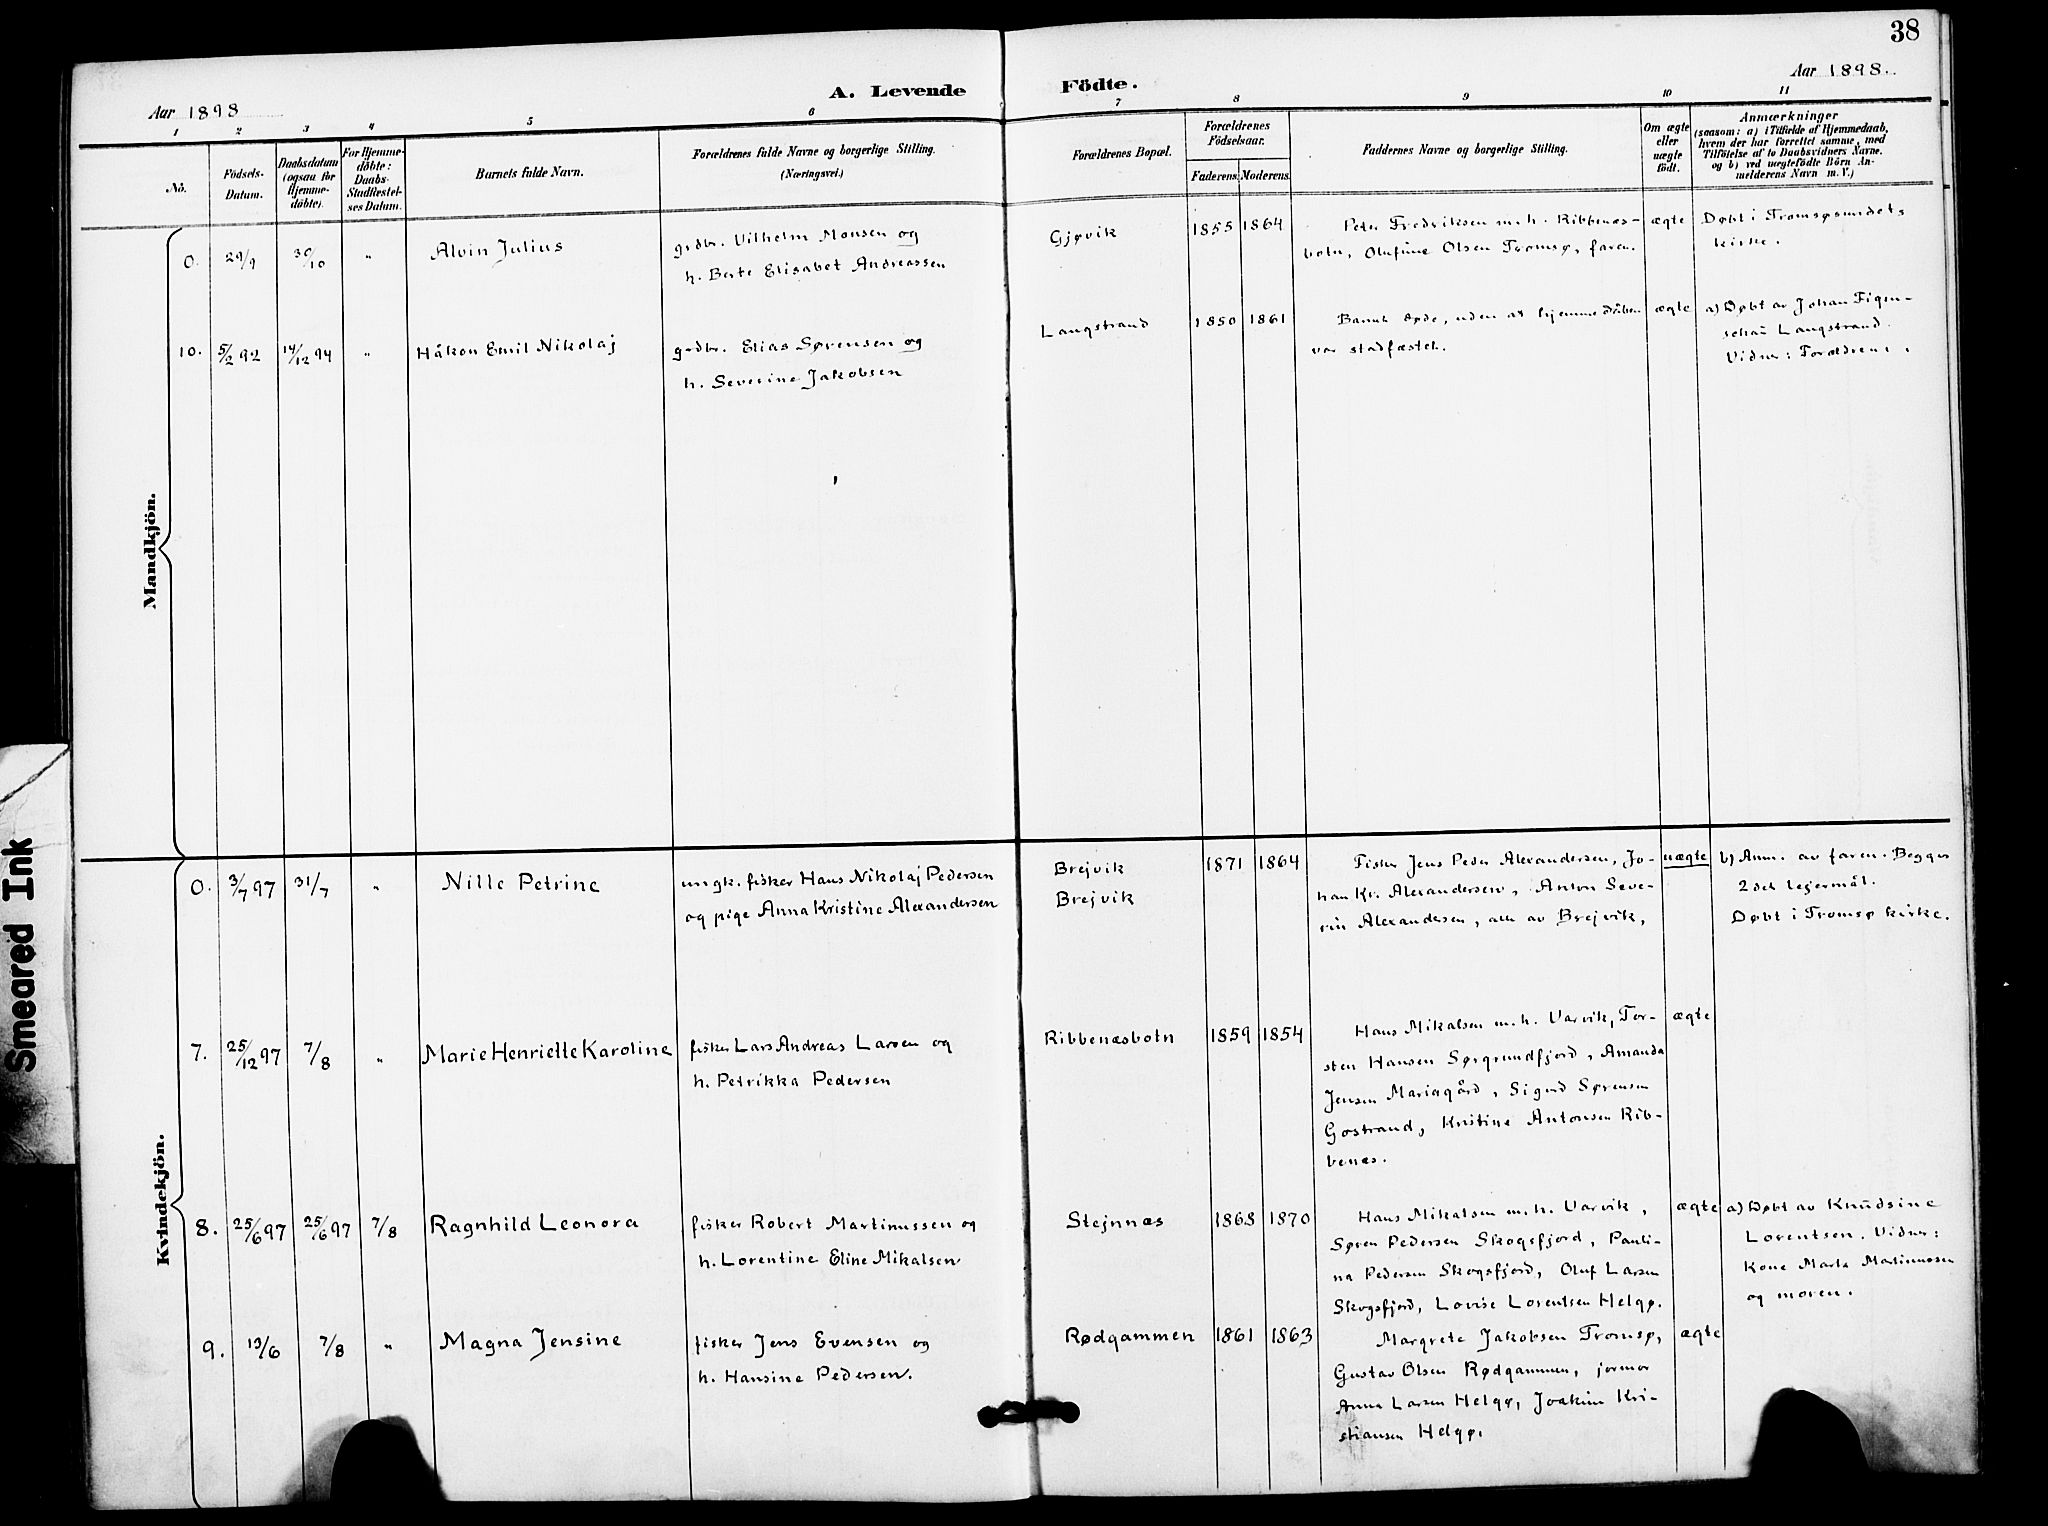 38
Aar 1898
A. Levende Födte.
Aar 1898.
1 2 3 4 5 6 7 8 9 10 11
No.
Födsels-
Datum.
Daabsdatum
(ogsaa for
Hjemme-
döbte).
For Hjemme-
döbte:
Daabs-
Stadfæstel-
ses Datum.
Barnets fulde Navn.
Forældrenes fulde Navne og borgerlige Stilling.
(Næringsvei.)
Forældrenes Bopæl.
Forældrenes
Födselsaar.
Faderens. Moderens.
Faddernes Navne og borgerlige Stilling.
Om ægte
eller
uægte
födt.
Anmærkninger
(saasom: a) i Tilfælde af Hjemmedaab,
hvem der har forrettet samme, med
Tilföielse af to Daabsvidners Navne.
og b) ved uægtefödte Börn An-
melderens Navn m. V.)
Mandkjön.
0. 29/9 30/10 " Alvin Julius
grdbr. Vilhelm Monsen og
h. Berte Elisabet Andreassen
Gjøvik 1855 1864
Peter Fredriksen m. h. Ribbenæs-
botn, Olufine Olsen Tromsø, faren.
ægte
Døbt i Tromsøsundets
kirke.
10. 5/2 92 14/12 94 " Håkon Emil Nikolaj
grdbr. Elias Sørensen og
h. Severine Jakobsen
Langstrand 1850 1861
Barnet døde, uden at hjemmedåben
var stadfæstet.
ægte
a) Døbt av Johan Figen-
schau Langstrand.
Vidner: Forældrene.
Kvindekjön.
0. 3/7 97 31/7 " Nille Petrine
ungk. fisker Hans Nikolaj Pedersen
og pige Anna Kristine Alexandersen
Brejvik
Brejvik
1871 1864
Fisker Jens Peder Alexandersen, Jo-
han Kr. Alexandersen, Anton Seve-
rin Alexandersen, alle av Brejvik,
uægte
b) Anm. av faren. Begges
2det lejermål.
Døbt i Tromsø kirke.
7. 25/12 97 7/8 " Marie Henriette Karoline
fisker Lars Andreas Larsen og
h. Petrikka Pedersen
Ribbenæsbotn 1859 1854
Hans Mikalsen m. h. Varvik, Tor-
sten Hansen Sørgrundfjord, Amanda
Jensen Mariagård, Sigurd Sørensen
Gostrand, Kristine Antonsen Rib-
benæs.
ægte
8. 25/6 97 25/6 97 7/8 Ragnhild Leonora
fisker Robert Martinussen og
h. Lorentine Eline Mikalsen
Stejnnæs 1868 1870
Hans Mikalsen m. h. Varvik,
Søren Pedersen Skogsfjord, Pauli-
na Pedersen Skogsfjord, Oluf Larsen
Skogsfjord, Lovise Lorentsen Helgø.
ægte
a) Døbt av Knudsine
Lorentsen. Vidner:
Kone Marte Martinussen
og moren.
9. 13/6 7/8 " Magna Jensine
fisker Jens Evensen og
h. Hansine Pedersen.
Rødgammen 1861 1863
Margrete Jakobsen Tromsø,
Gustav Olsen Rødgammen, jormor
Anna Larsen Helgø, Joakim Kri-
stiansen Helgø.
ægte
Smeared Ink